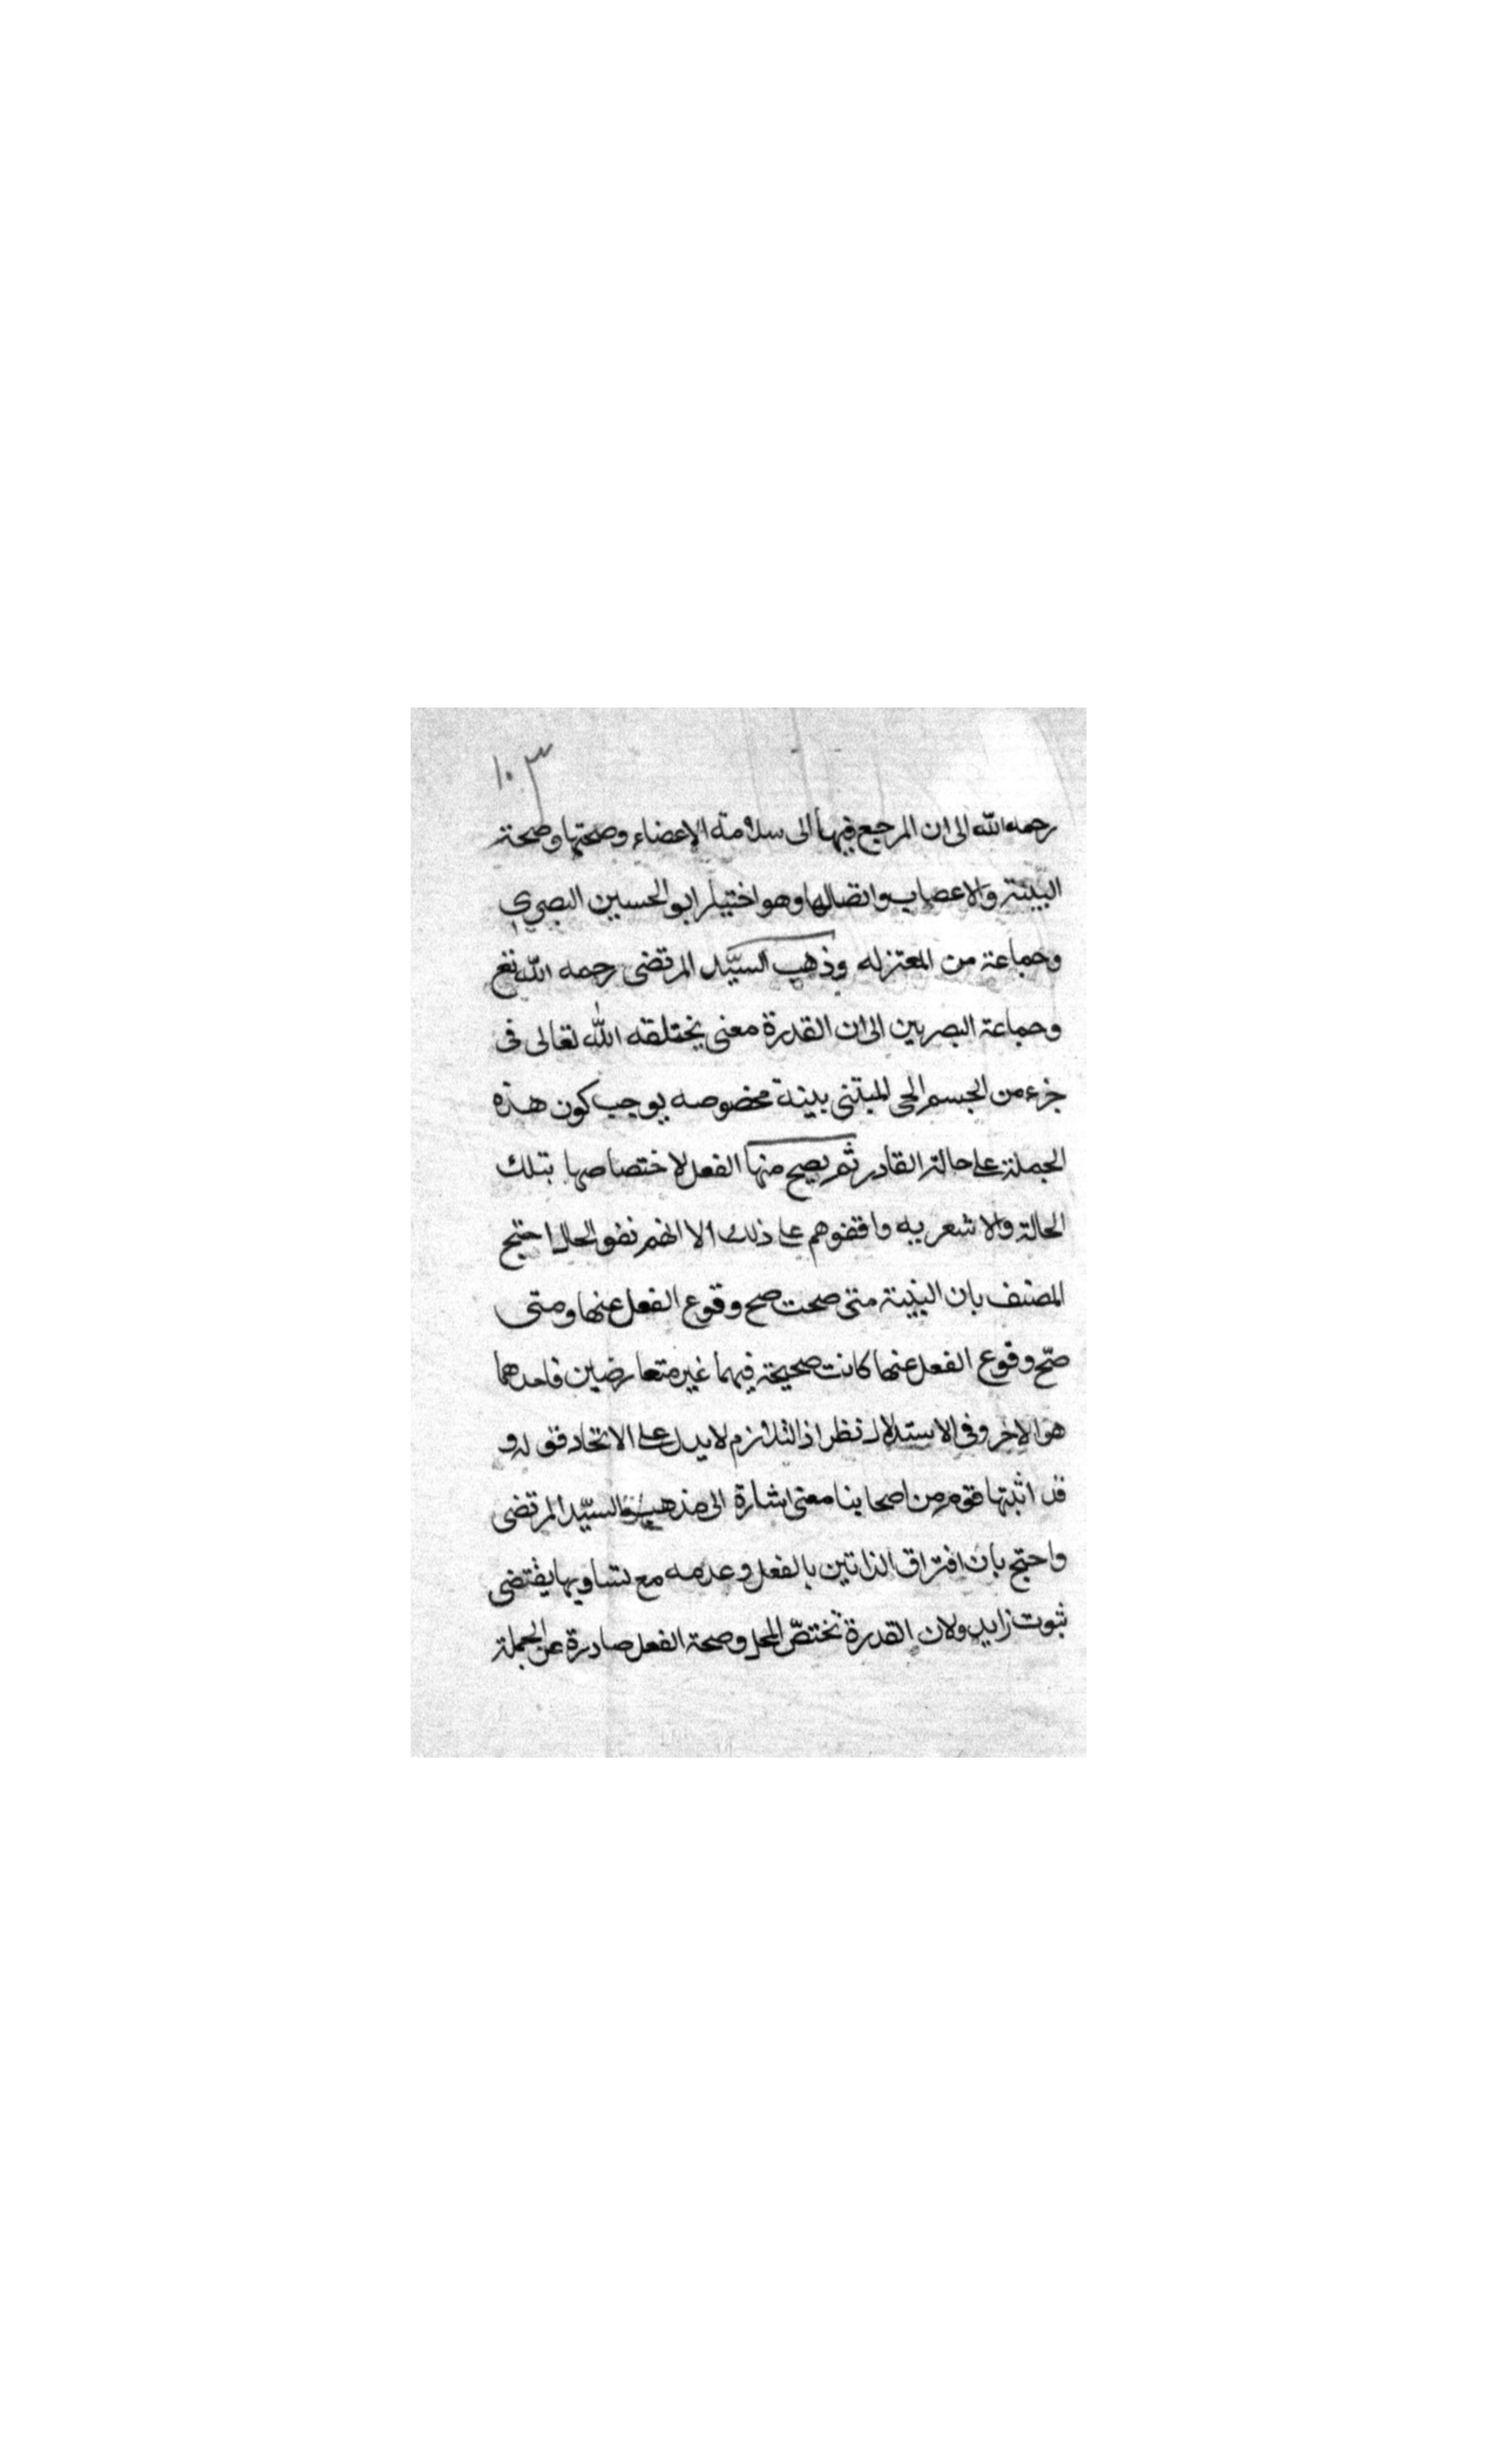 ١٠٣
رحمه الله الى ان المرجع فيها الى سلامة الاعضاء وصحتها وصحة
البينة والاعصاب واتصالها وهو اختيار ابو الحسين البصري
وجماعة من المعتزله وذهب السيّد المرتضى رحمه الله تع
وجماعة البصريين الى ان القدرة معنى يختلقه الله تعالى فى
جزء من الجسم الحى المبتنى بينة مخصوصه يوجب كون هذه
الجملة على حالة القادر ثم يصح منها الفعل لاختصاصها بتلك
الحالة والاشعريه وافقوهم على ذلك الا انهم نفو الحال احتج
المصنف بان البنينة متى صحت صح وقوع الفعل عنها ومتى
صحّ وقوع الفعل عنها كانت صحيحة فيهما غير متعارضين فاحدهما
هو الاخر وفى الاستدلال نظر اذ التلازم لا يدل على الاتحاد قوله و
قد اثبتها قوم من اصحابنا معنى اشارة الى مذهب السيّد المرتضى
واحتج بان افتراق الذاتين بالفعل وعدمه مع تساويها يقتضى
ثبوت زايد ولان القدرة تختصّ المحل وصحة الفعل صادرة عن الجملة